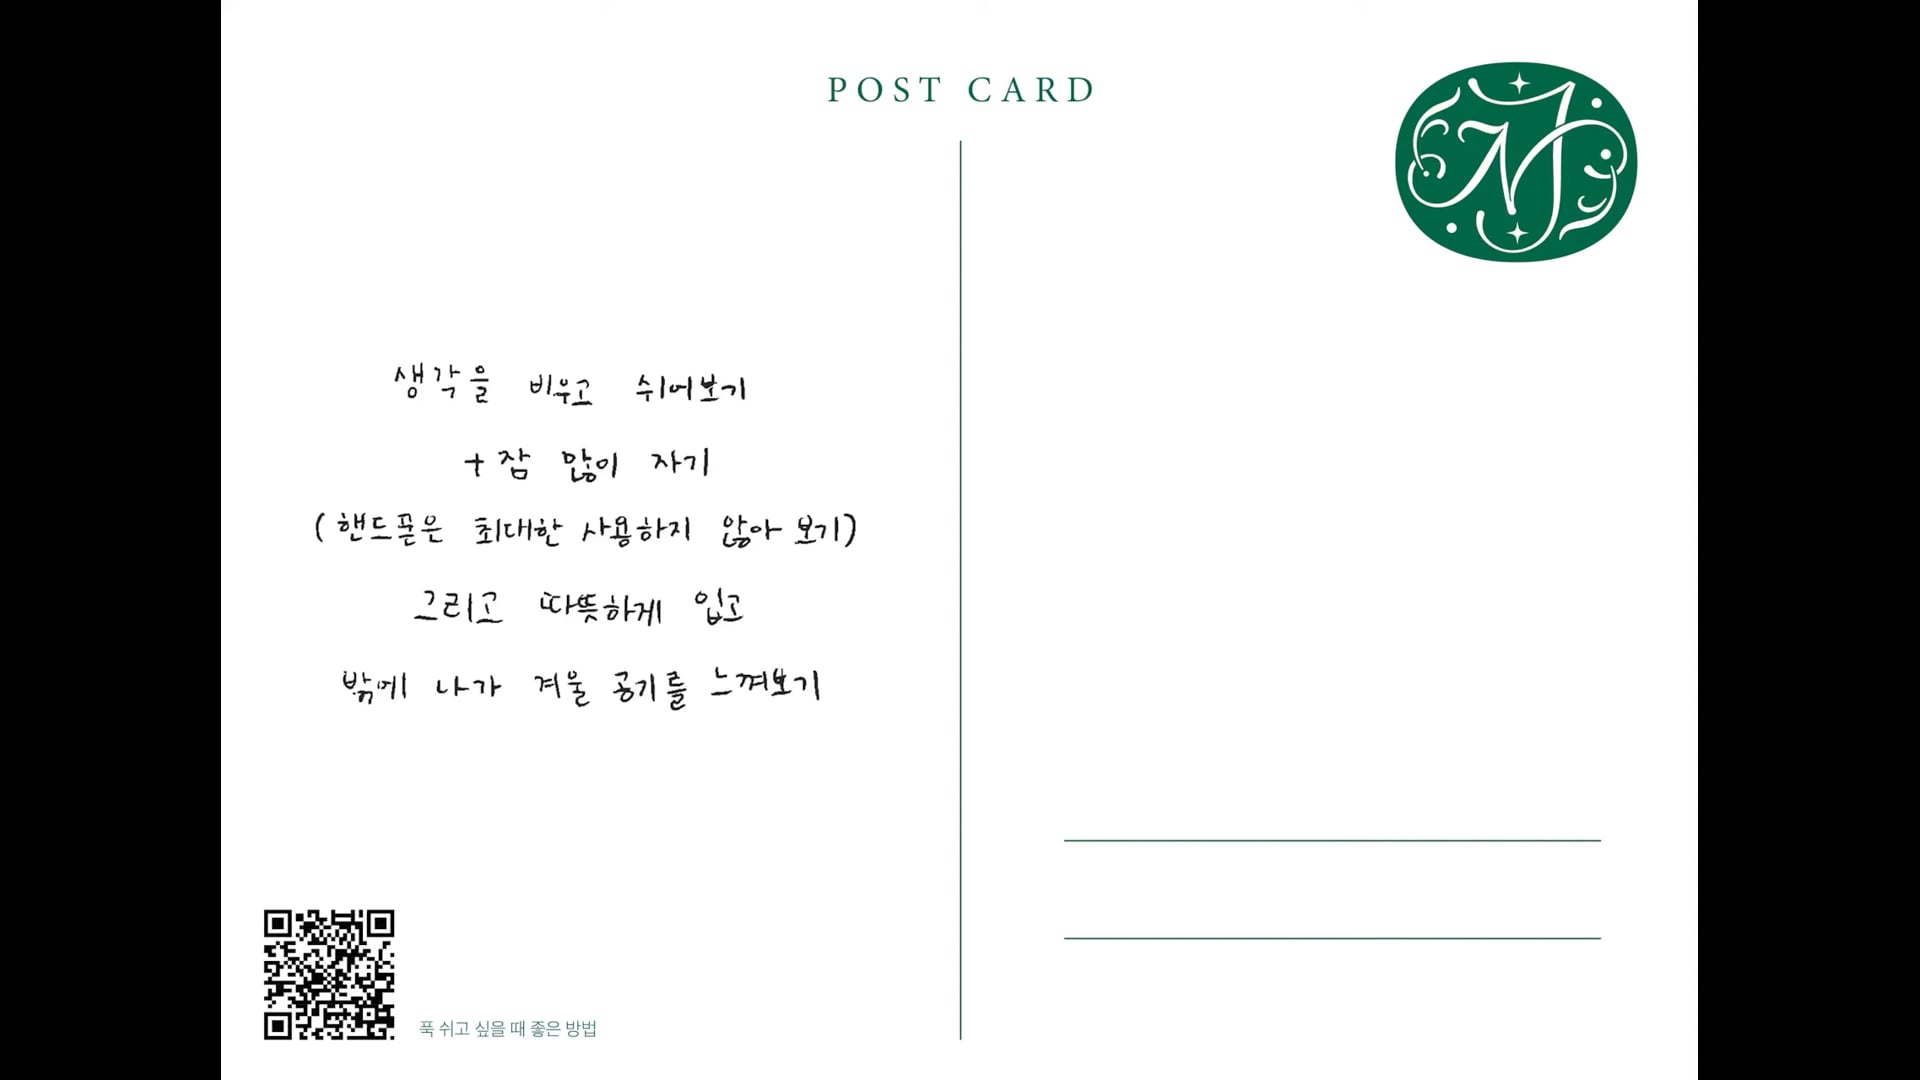 POST CARD
생각을 비우고 쉬어보기
+ 잠 많이 자기
(핸드폰은 최대한 사용하지 않아 보기)
그리고 따뜻하게 입고
밖에 나가 겨울 공기를 느껴보기
푹 쉬고 싶을 때 좋은 방법